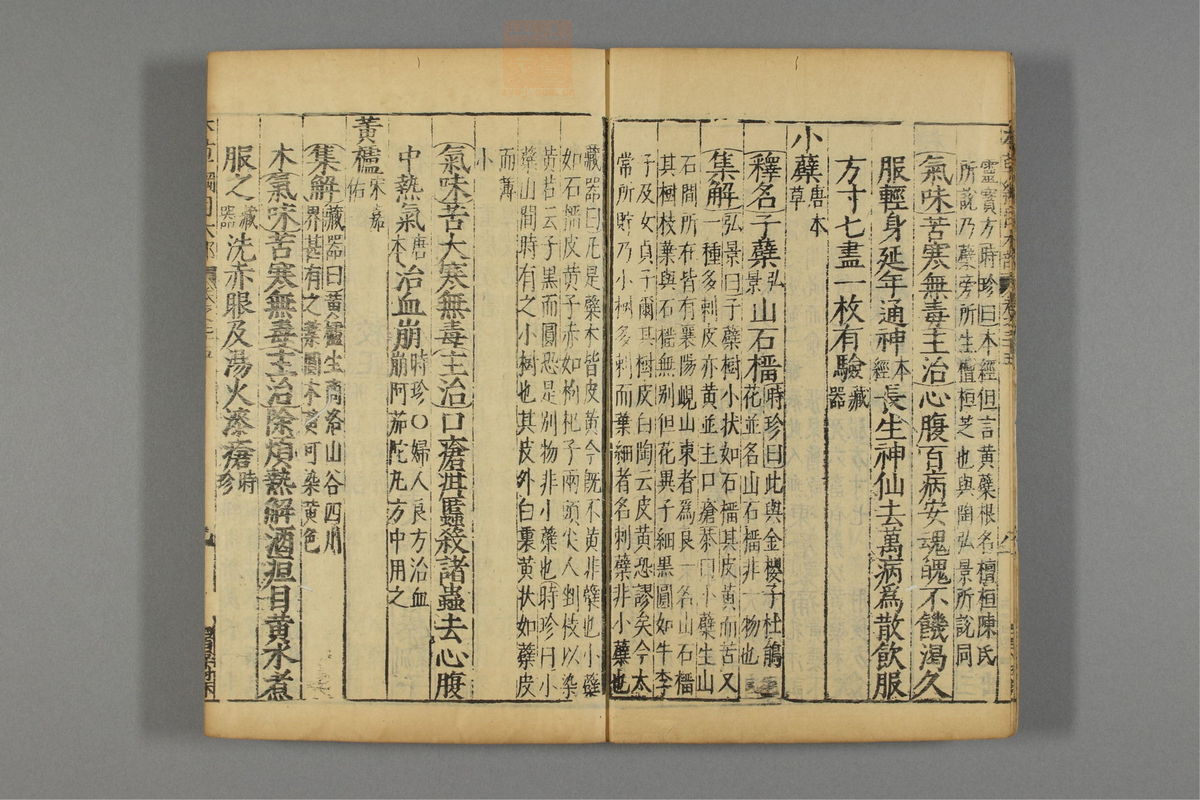 靈寶方時珍曰本經但言黃蘗根名檀桓陳氏
所說乃蘗旁所生檀桓芝也與陶弘景所說同
氣味苦寒無毒主治心腹百病安魂魄不饑渴久
服輕身延年通神本經長生神仙去萬病為散飲服
方寸七盡一枚有驗藏器
小蘗唐本草
釋名子蘗弘景山石榴時珍曰此與金櫻子杜鵑花並名山石榴非一物也
集解弘景曰子蘗樹小狀如石榴其皮黃而苦又
一種多刺皮亦黃並主口瘡恭曰小蘗生山
石間所在皆有襄陽峴山東者為良一名山石榴
其樹枝葉與石榴無別但花異子細黑圓如牛李
子及女貞子爾其樹皮白陶云皮黃恐謬矣今太
常所貯乃小樹多刺而葉細者名刺蘗非小蘗也
藏器曰凡是蘗木皆皮黃今既不黃非蘗也小蘗
如石榴皮黃子赤如枸杞子兩頭尖人剉枝以染
黃若云子黑而圓恐是別物非小蘗也時珍曰小
蘗山間時有之小樹也其皮外白裏黃狀如蘗皮
而薄小
氣味苦大寒無毒主治口瘡疳䘌殺諸蟲去心腹
中熱氣唐本治血崩時珍〇婦人良方治血崩阿茄陀丸方中用之
黃櫨宋嘉佑
集解藏器曰黃櫨生商洛山谷四川
界甚有之葉圓木黃可染黃色
木氣味苦寒無毒主治除煩熱解酒疸目黃水煮
服之藏器洗赤眼及湯火漆瘡時珍